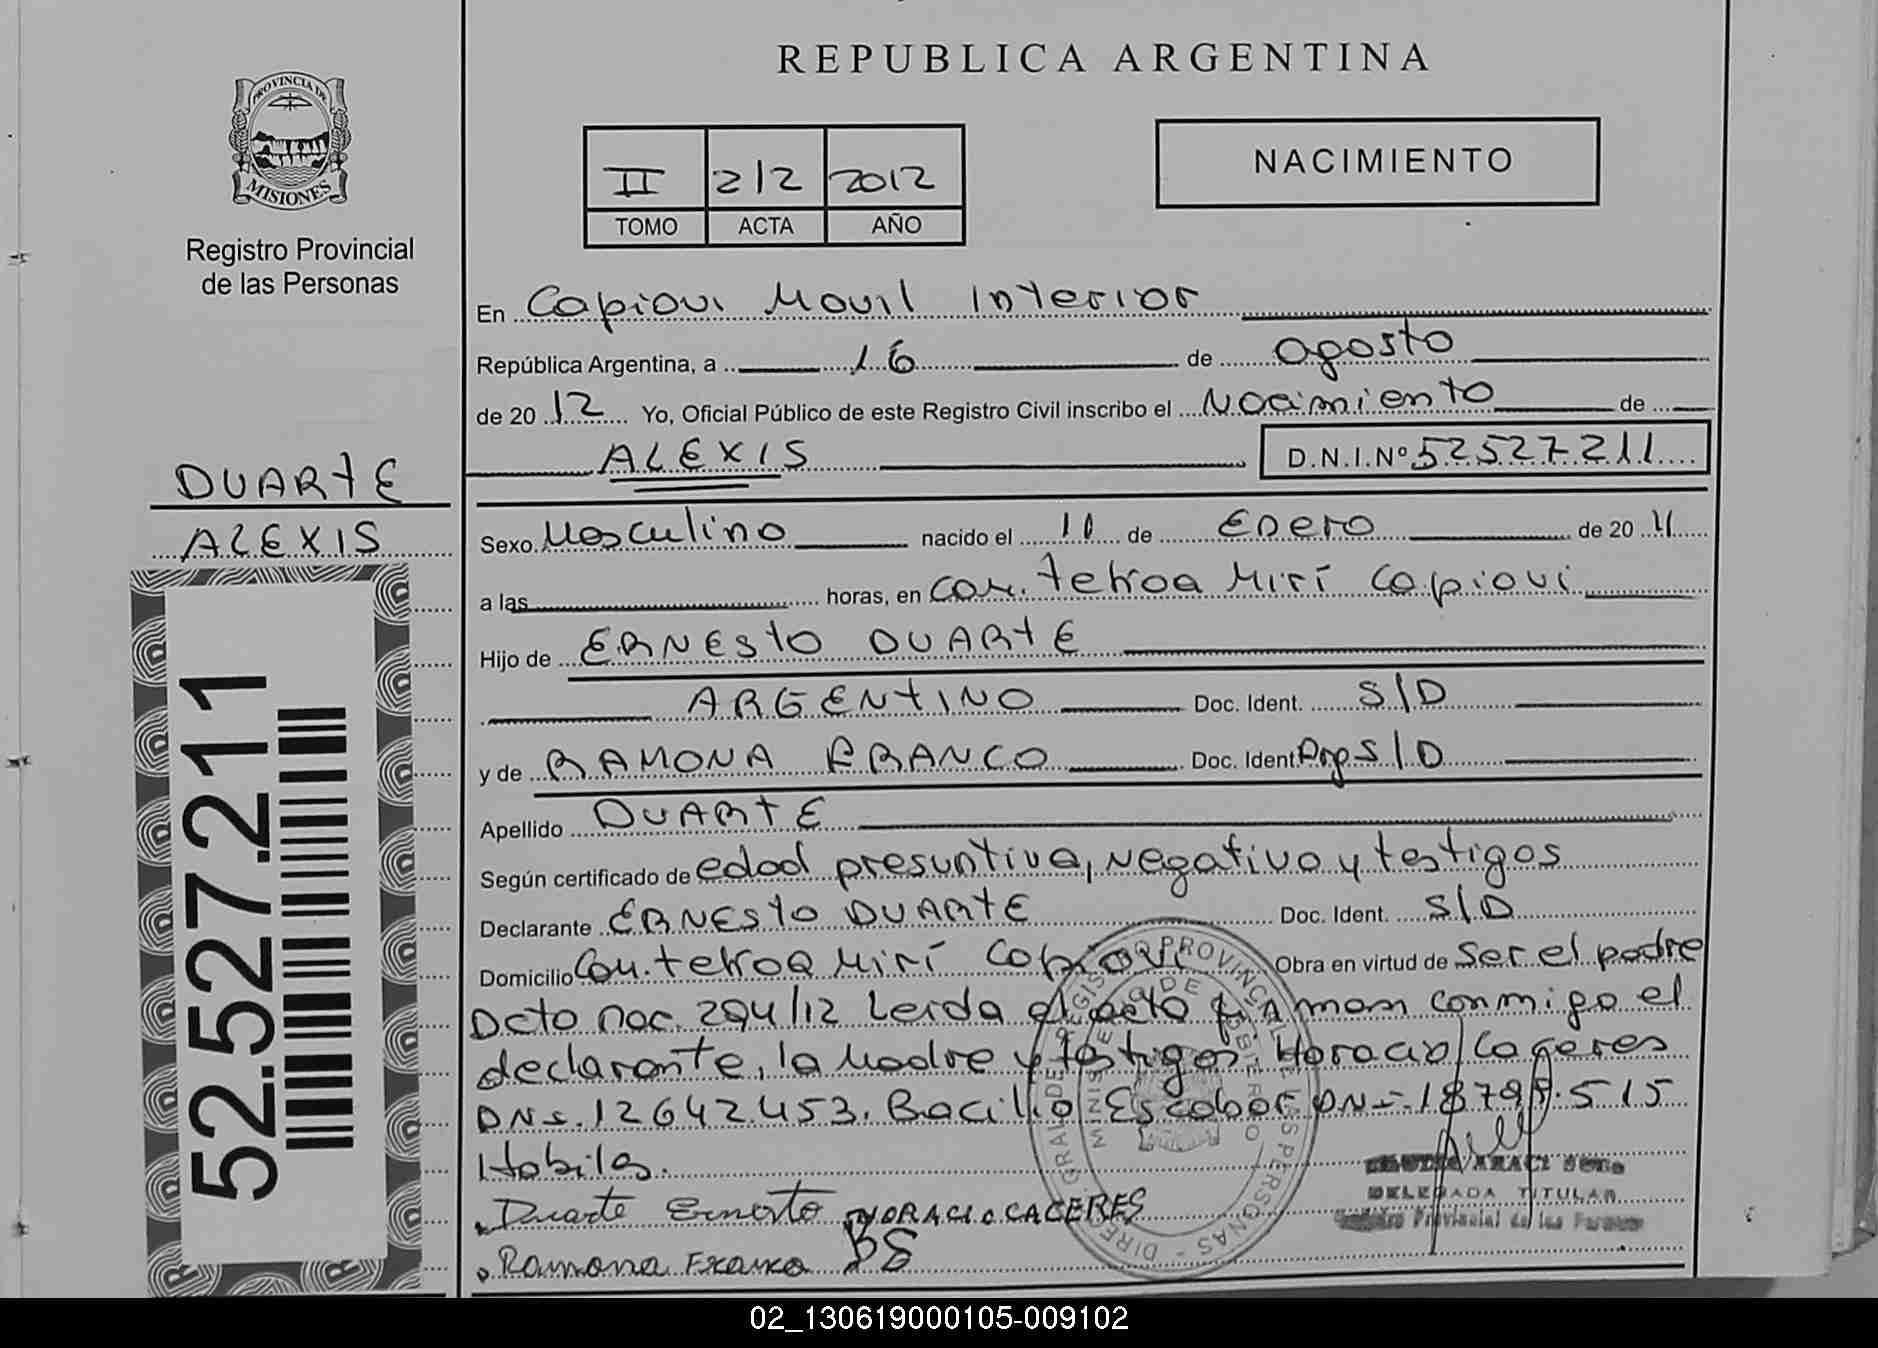 REPUBLICA ARGENTINA
PROVINCIA DE
MISIONES
Registro Provincial
de las Personas
II 212 2012
TOMO ACTA AÑO
NACIMIENTO
En Capiovi Movil Interior
República Argentina, a 16 de agosto
de 2012 Yo, Oficial Público de este Registro Civil inscribo el Nacimiento de
ALEXIS D.N.I.Nº 52.527.211
DUARTE
ALEXIS
Sexo Masculino nacido el 11 de Enero de 2011
a las horas, en Com. Tekoa Mirí Capiovi
Hijo de ERNESTO DUARTE
ARGENTINO Doc. Ident. S/D
y de RAMONA FRANCO Doc. Ident Arg S/D
Apellido DUARTE
Según certificado de edad presuntiva, negativo y testigos
Declarante ERNESTO DUARTE Doc. Ident. S/D
Domicilio Com. tekoa Mirí Capiovi Obra en virtud de ser el padre
Dcto nac. 294/12 Leida el acta firman conmigo el
declarante, la Madre y testigos Horacio Caceres
DNI. 12642.453. Bacilio Escobar DNI. 18.798.515
Habiles.
Duarte Ernesto HORACIO CACERES
Ramona Franco BE
DELEGADA TITULAR
Registro Provincial de las Personas
52.527.211
02_130619000105-009102